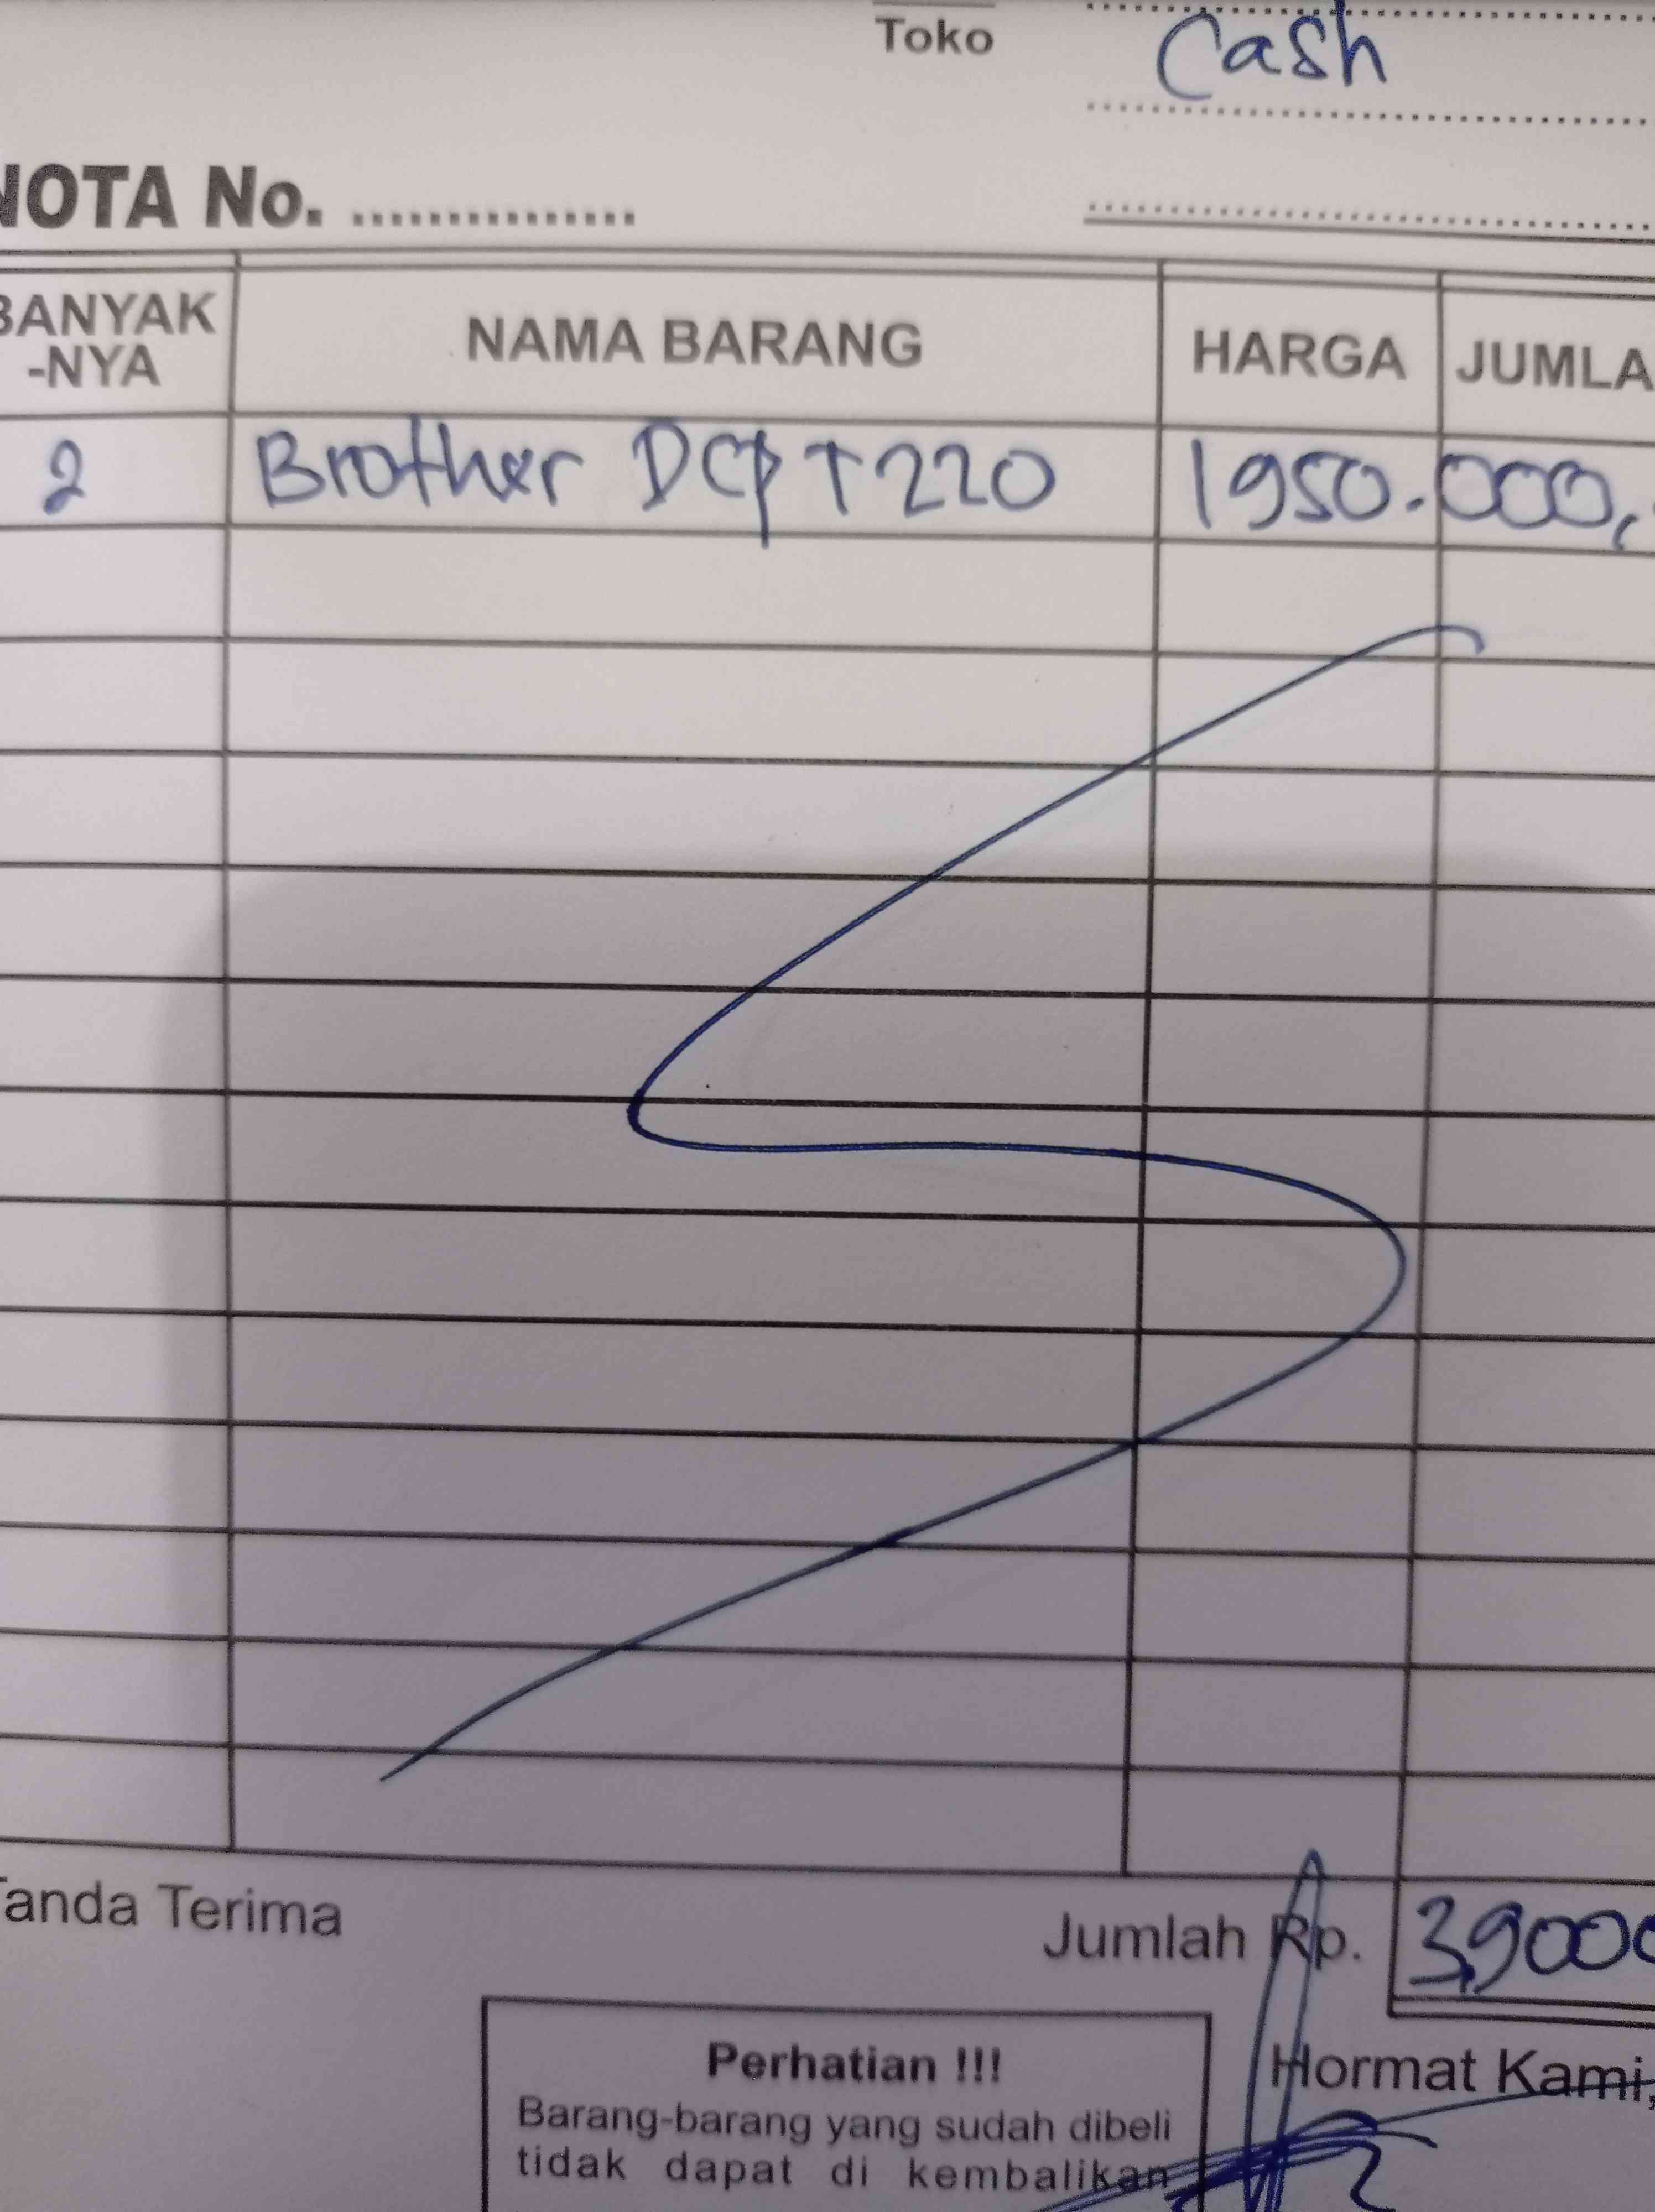 Toko Cash
NOTA No. ...............
BANYAK NAMA BARANG HARGA JUMLA
-NYA
2 Brother DCP T220 1950.000,
Tanda Terima
Jumlah Rp. 3,9000
Perhatian !!!
Hormat Kami,
Barang-barang yang sudah dibeli
tidak dapat di kembalikan